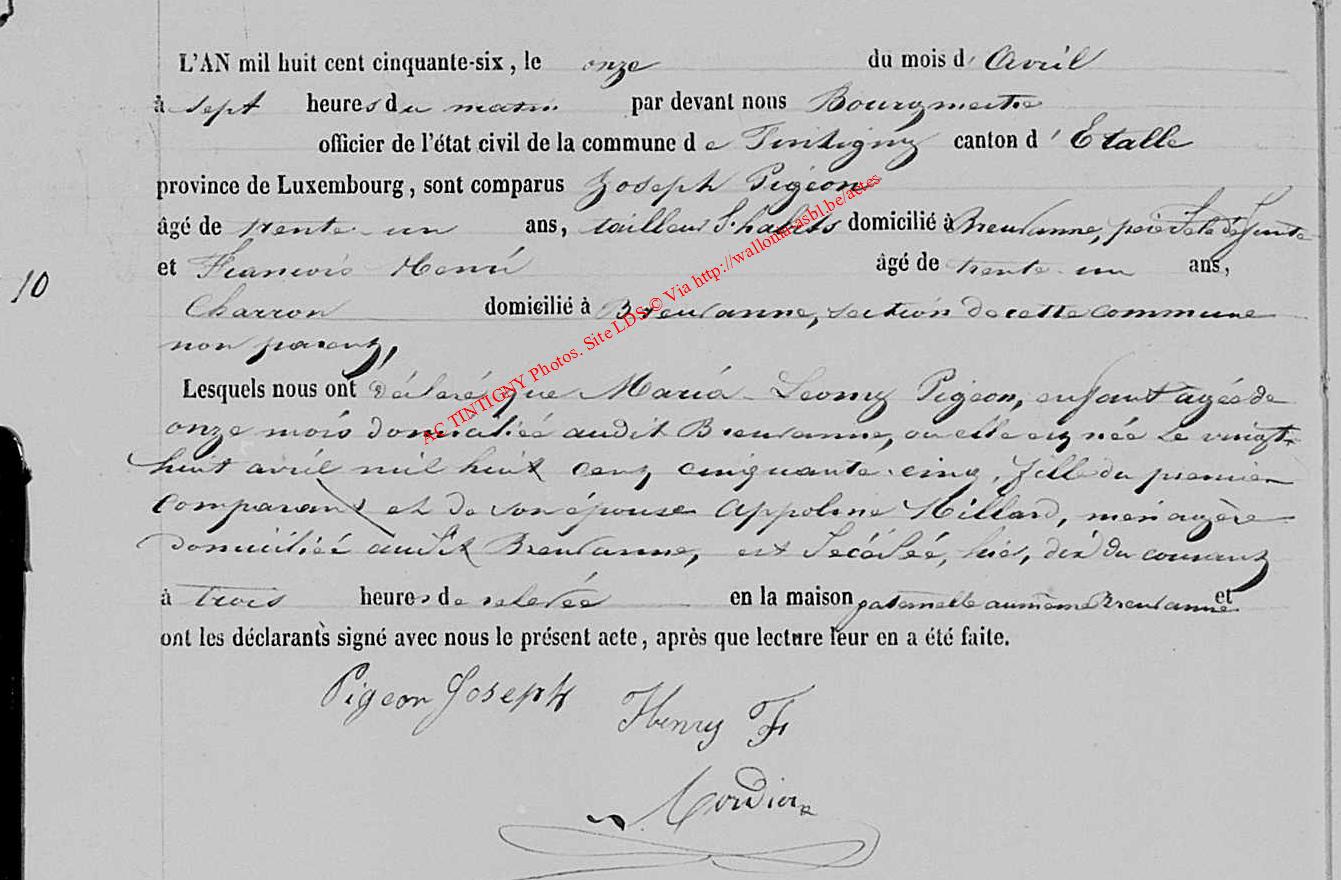 L'AN mil huit cent cinquante-six, le onze du mois d'Avril
à sept heures du matin par devant nous Bourgmestre
officier de l'état civil de la commune de Tintigny canton d'Etalle
province de Luxembourg, sont comparus Joseph Pigeon
âgé de trente-un ans, tailleur d'habits domicilié à Breuvanne, père de la défunte
et François Henri âgé de trente-un ans,
10
Charron domicilié à Breuvanne, section de cette commune
non parent,
Lesquels nous ont déclaré que Maria Leony Pigeon, enfant agée de
onze mois domiciliée audit Breuvanne, où elle est née le vingt-
huit avril mil huit cent cinquante-cinq, fille du premier
comparant et de son épouse Appoline Hillard, ménagère
domiciliée audit Breuvanne, est décédée, hier, dix du courant
à trois heures de relevée en la maison paternelle au même Breuvanne et
ont les déclarants signé avec nous le présent acte, après que lecture leur en a été faite.
Pigeon Joseph
Henry F
AC TINTIGNY Photos. Site LDS © Via http://wallonia-asbl.be/actes